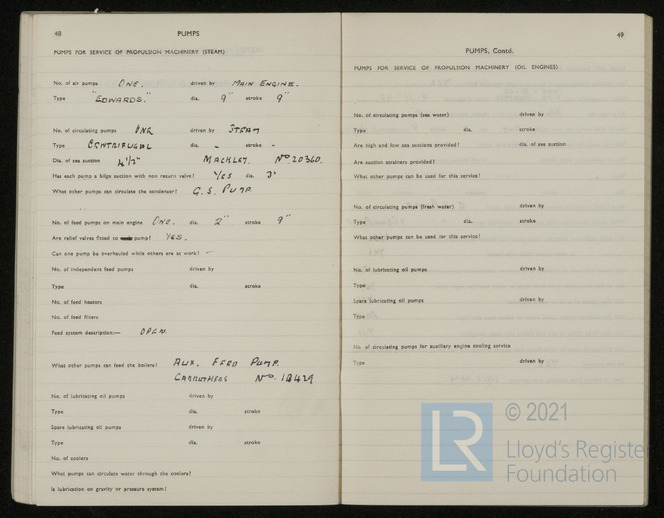 48 PUMPS
PUMPS FOR SERVICE OF PROPULSION MACHINERY (STEAM)
No. of air pumps ONE. driven by MAIN ENGINE.
Type "EDWARDS." dia. 9" stroke 9"
No. of circulating pumps ONE driven by STEAM
Type CENTRIFUGAL dia. - stroke -
Dia. of sea suction 4½" MACKLEY. No 20360.
Has each pump a bilge suction with non return valve? YES dia. 3"
What other pumps can circulate the condenser? G.S. PUMP.
No. of feed pumps on main engine ONE. dia. 2" stroke 9"
Are relief valves fitted to pump? YES.
Can one pump be overhauled while others are at work? -
No. of independent feed pumps driven by
Type dia. stroke
No. of feed heaters
No. of feed filters
Feed system description:— OPEN.
What other pumps can feed the boilers? AUX. FEED PUMP.
CARRUTHERS No.
No. of lubricating oil pumps driven by
Type dia. stroke
Spare lubricating oil pumps driven by
Type dia. stroke
No. of coolers
What pumps can circulate water through the coolers?
Is lubrication on gravity or pressure system?
49
PUMPS, Contd.
PUMPS FOR SERVICE OF PROPULSION MACHINERY (OIL ENGINES)
No. of circulating pumps (sea water) driven by
Type dia. stroke
Are high and low sea suctions provided? dia. of sea suction
Are suction strainers provided?
What other pumps can be used for this service?
No. of circulating pumps (fresh water) driven by
Type dia. stroke
What other pumps can be used for this service?
No. of lubricating oil pumps driven by
Type
Spare lubricating oil pumps driven by
Type
No. of circulating pumps for auxiliary engine cooling service
Type driven by
LR © 2021
Lloyd's Register
Foundation